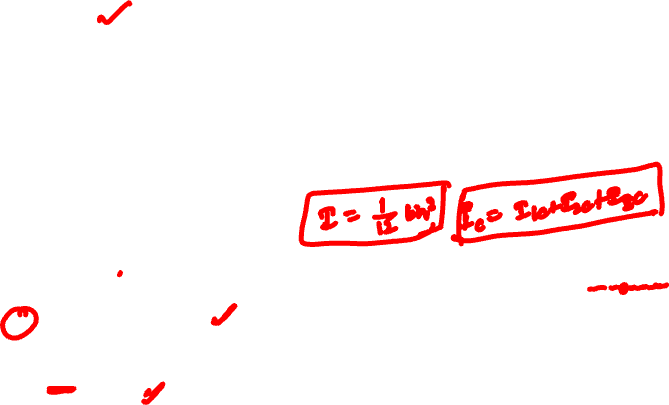 I = 1/12 bh³
I_c = I_1c + I_2c + I_3c